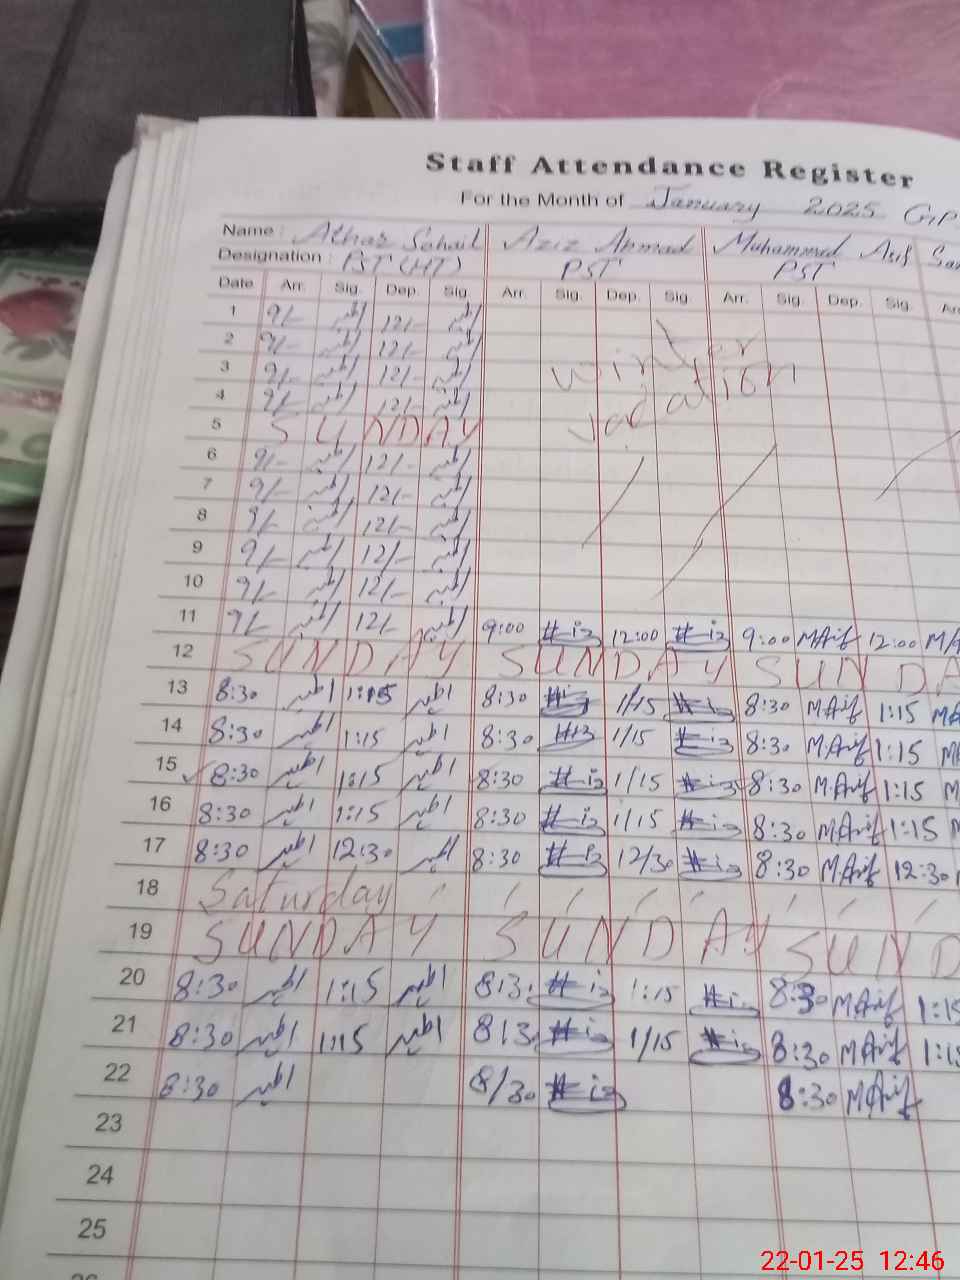 Staff Attendance Register
For the Month of January 2025 G.P
Name : Athar Sohail Aziz Ahmad Muhammad Asif
Designation : PST (HT) PST PST
Date Arr. Sig. Dep. Sig. Arr. Sig. Dep. Sig Arr. Sig. Dep. Sig.
1 9/- اطہر 12/- اطہر
2 9/- اطہر 12/- اطہر winter
3 9/- اطہر 12/- اطہر vacation
4 9/- اطہر 12/- اطہر
5 SUNDAY
6 9/- اطہر 12/- اطہر
7 9/- اطہر 12/- اطہر
8 9/- اطہر 12/- اطہر
9 9/- اطہر 12/- اطہر
10 9/- اطہر 12/- اطہر
11 9/- اطہر 12/- اطہر 9:00 12:00 9:00 M Asif 12:00
12 SUNDAY SUNDAY SUNDA
13 8:30 اطہر 1:15 اطہر 8:30 1/15 8:30 M Asif 1:15
14 8:30 اطہر 1:15 اطہر 8:30 1/15 8:30 M Asif 1:15
15 8:30 اطہر 1:15 اطہر 8:30 1/15 8:30 M Asif 1:15
16 8:30 اطہر 1:15 اطہر 8:30 1/15 8:30 M Asif 1:15
17 8:30 اطہر 12:30 اطہر 8:30 12/30 8:30 M Asif 12:30
18 Saturday
19 SUNDAY SUNDAY SUND
20 8:30 اطہر 1:15 اطہر 1:15 8:30 M Asif 1:15
21 8:30 اطہر 1:15 اطہر 1/15 8:30 M Asif
22 8:30 اطہر 8/30 8:30 M Asif
23
24
25
22-01-25 12:46